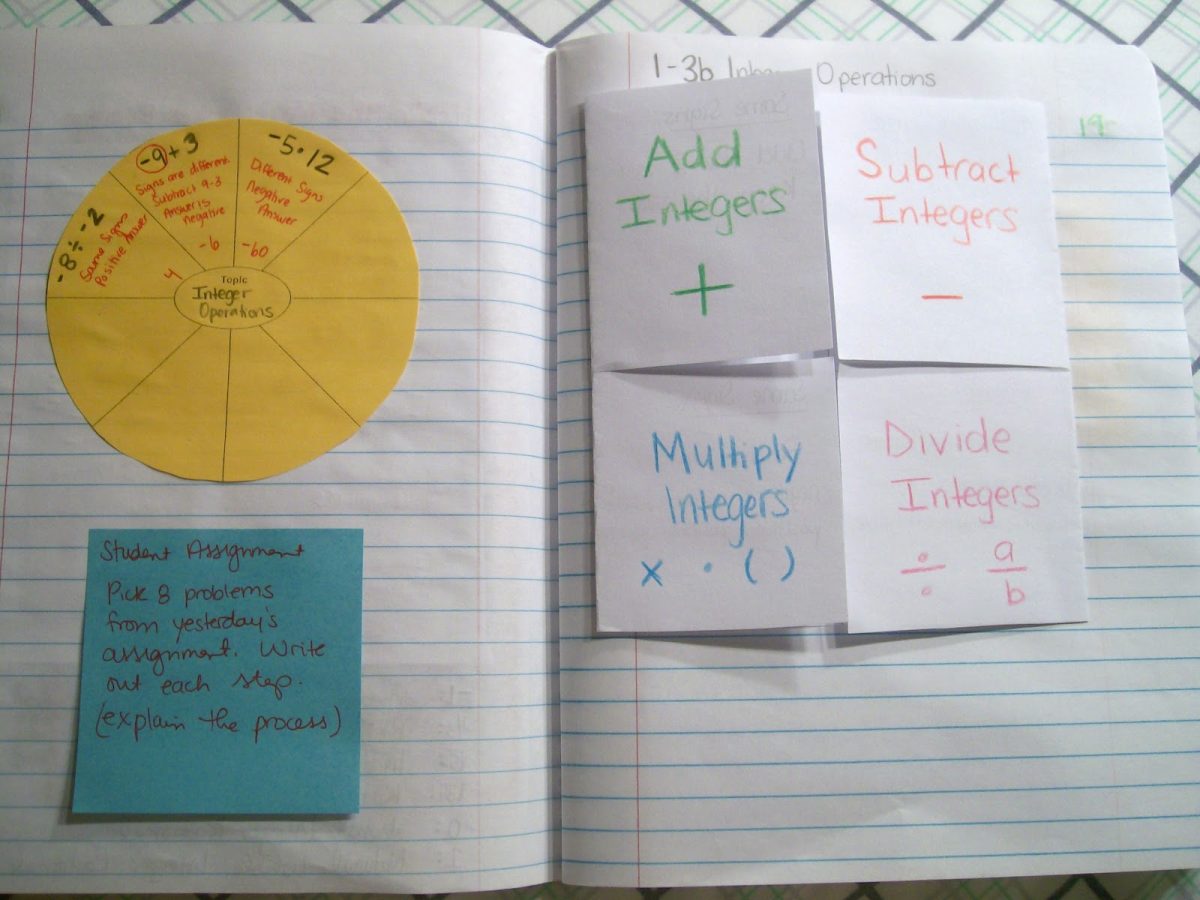 -8 ÷ -2
Same Signs
Positive Answer
4
-9 + 3
Signs are different
Subtract 9-3
Answer is
negative
-6
-5 · 12
Different Signs
Negative
Answer
-60
Topic
Integer
Operations
Student Assignment
Pick 8 problems
from yesterday's
assignment. Write
out each step.
(explain the process)
1-3b Operations
Add
Integers
+
Subtract
Integers
−
Multiply
Integers
x · ( )
Divide
Integers
÷ a/b